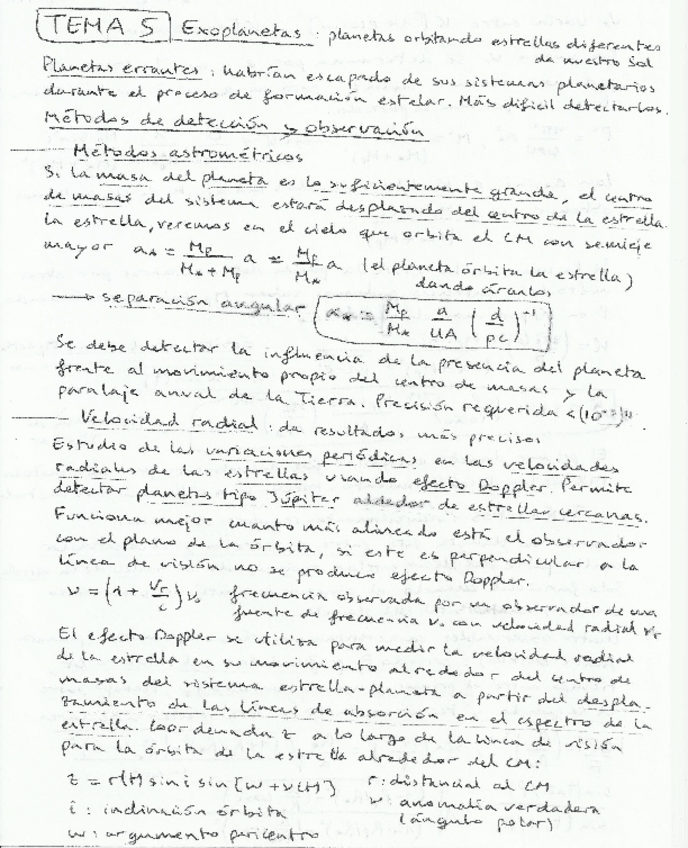 TEMA 5 Exoplanetas : planetas orbitando estrellas diferentes
de nuestro Sol
Planetas errantes : habrían escapado de sus sistemas planetarios
durante el proceso de formación estelar. Más difícil detectarlos.
Métodos de detección y observación
Métodos astrométricos
Si la masa del planeta es lo suficientemente grande, el centro
de masas del sistema estará desplazado del centro de la estrella.
La estrella, veremos en el cielo que orbita el CM con semieje
mayor a* = Mp/(M* + Mp) a ≃ Mp/M* a (el planeta órbita la estrella)
dando círculos
→ separación angular α* = Mp/M* a/UA (d/pc)⁻¹
Se debe detectar la influencia de la presencia del planeta
frente al movimiento propio del centro de masas y la
paralaje anual de la Tierra. Precisión requerida < (10⁻³)"
Velocidad radial : da resultados más precisos
Estudio de las variaciones periódicas en las velocidades
radiales de las estrellas usando efecto Doppler. Permite
detectar planetas tipo Júpiter alrededor de estrellas cercanas.
Funciona mejor cuanto más alineado está el observador
con el plano de la órbita, si este es perpendicular a la
línea de visión no se produce efecto Doppler.
ν = (1 + Vr/c) ν₀ frecuencia observada por un observador de una
fuente de frecuencia ν₀ con velocidad radial vr
El efecto Doppler se utiliza para medir la velocidad radial
de la estrella en su movimiento alrededor del centro de
masas del sistema estrella-planeta a partir del despla-
zamiento de las líneas de absorción en el espectro de la
estrella. Coordenada z a lo largo de la línea de visión
para la órbita de la estrella alrededor del CM:
z = r(t) sin i sin [w + ν(t)] r : distancia al CM
i : inclinación órbita ν : anomalía verdadera
(ángulo polar)
w : argumento pericentro